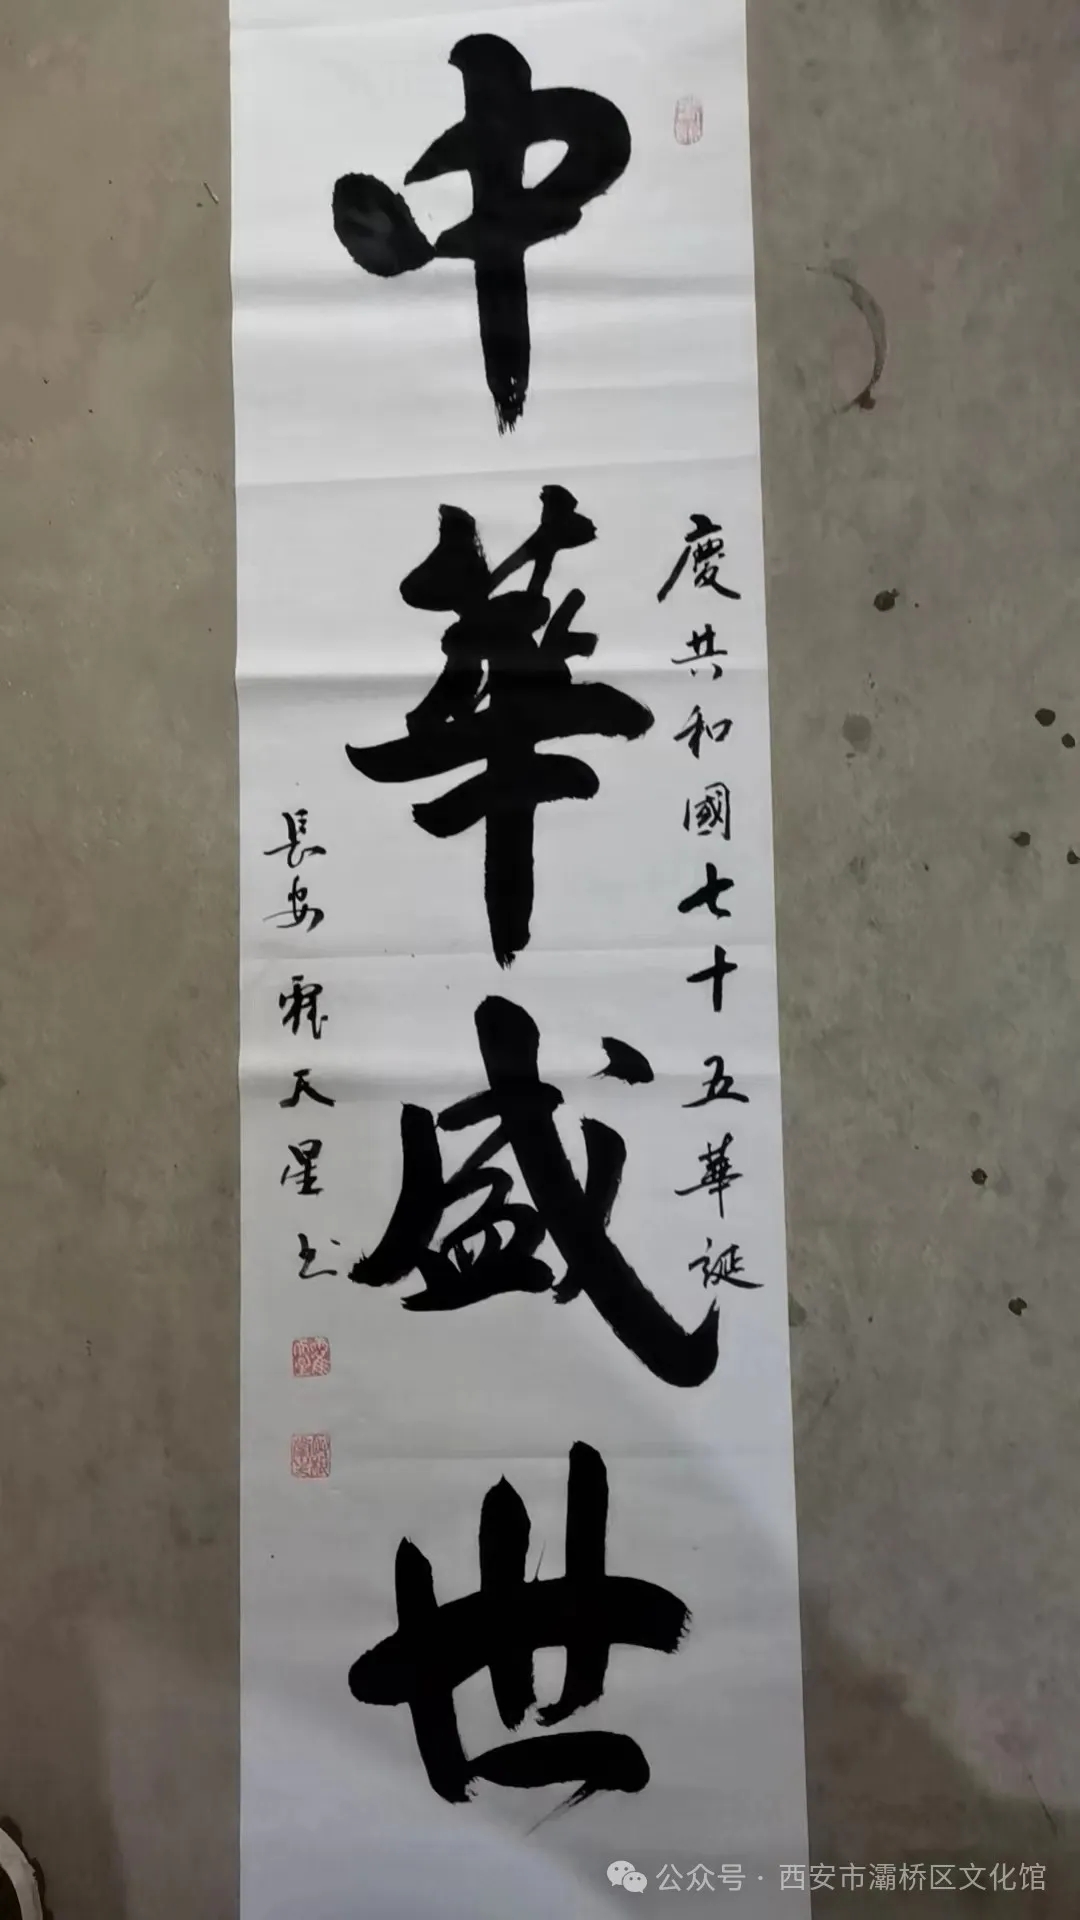 中華盛世
慶共和國七十五華誕
長安 天星书
公众号 · 西安市灞桥区文化馆